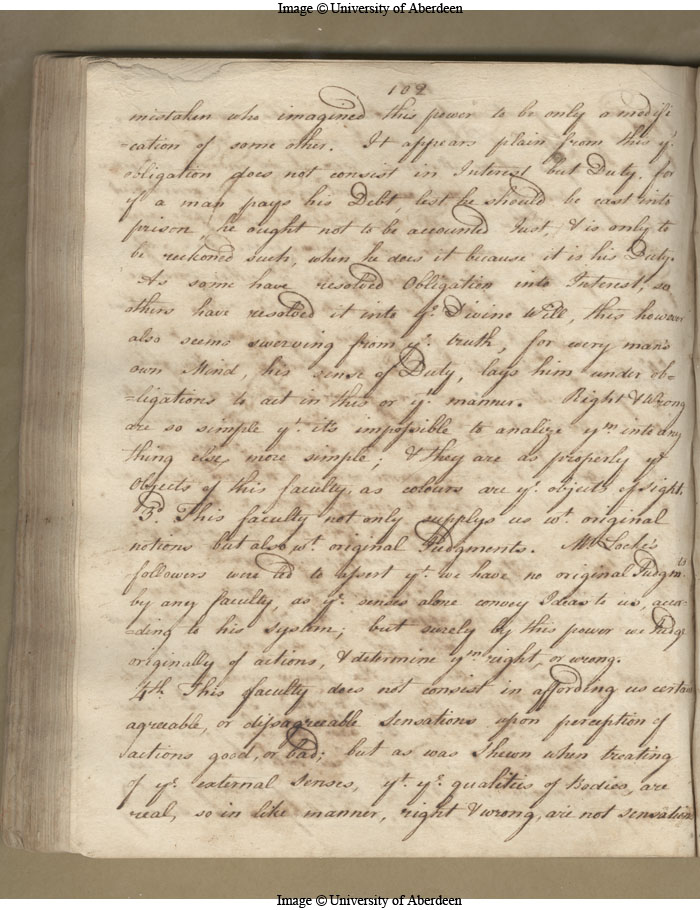 Image © University of Aberdeen
102
mistaken who imagined this power to be only a modifi
-cation of some other. It appears plain from this yt
obligation does not consist in Interest but Duty. for
if a man pays his Debt, lest he should be cast into
prison, he ought not to be accounted Just, & is only to
be reckoned such, when he does it because it is his Duty.
As some have resolved Obligation into Interest, so
others have resolved it into ye Divine Will, this however
also seems swerving from ye truth, for every man's
own Mind, his sense of Duty, lays him under ob=
=ligations to act in this or yt manner. Right & Wrong
are so simple yt its impossible to analize ym into any
thing else more simple; & they are as properly ye
Objects of this faculty, as colours are ye objects of sight.
3d. This faculty not only supplys us wt original
notions but also wt original Judgments. Mr Locke's
followers were led to assert yt we have no original Judgmts
by any faculty, as ye senses alone convey Ideas to us, accor
=ding to his system; but surely by this power we Judge
originally of actions, & determine ym right, or wrong.
4th This faculty does not consist in affording us certain
agreeable, or disagreeable Sensations upon perception of
actions good, or bad; but as was Shewn when treating
of ye external Senses, yt ye qualities of Bodies, are
real, so in like manner, right & wrong, are not sensation
Image © University of Aberdeen